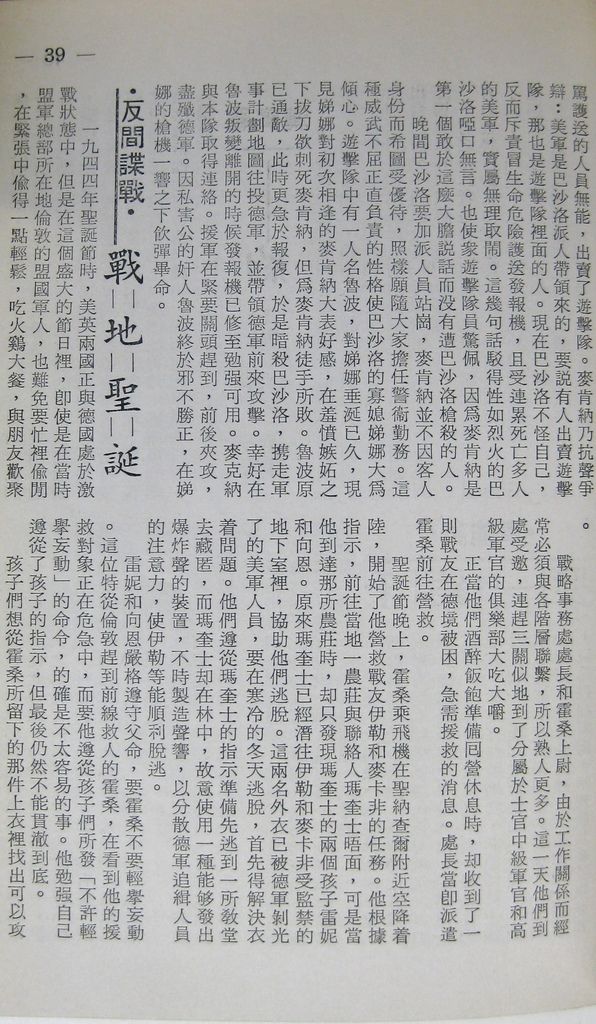 — 39 —
罵護送的人員無能，出賣了遊擊隊。麥肯納乃抗聲爭
辯：美軍是巴沙洛派人帶領來的，要說有人出賣遊擊
隊，那也是遊擊隊裡面的人。現在巴沙洛不怪自己，
反而斥責冒生命危險護送發報機，且受連累死亡多人
的美軍，實屬無理取鬧。這幾句話駁得性如烈火的巴
沙洛啞口無言。也使衆遊擊隊員驚佩，因爲麥肯納是
第一個敢於這麽大膽説話而沒有遭巴沙洛槍殺的人。
晚間巴沙洛要加派人員站崗，麥肯納並不因客人
身份而希圖受優待，照樣願隨大家擔任警衞勤務。這
種威武不屈正直負責的性格使巴沙洛的寡媳娣娜大爲
傾心。遊擊隊中有一人名魯波，對娣娜垂涎已久，現
見娣娜對初次相逢的麥肯納大表好感，在羞憤嫉妬之
下拔刀欲刺死麥肯納，但爲麥肯納徒手所敗。魯波原
已通敵，此時更急於報復，於是暗殺巴沙洛，携走軍
事計劃地圖往投德軍，並帶領德軍前來攻擊。幸好在
魯波叛變離開的時候發報機已修至勉强可用。麥克納
與本隊取得連絡。援軍在緊要關頭趕到，前後夾攻，
盡殲德軍。因私害公的奸人魯波終於邪不勝正，在娣
娜的槍機一響之下飲彈畢命。
·反間諜戰·
戰地聖誕
一九四四年聖誕節時，美英兩國正與德國處於激
戰狀態中，但是在這個盛大的節日裡，卽使是在當時
盟軍總部所在地倫敦的盟國軍人，也難免要忙裡偷閒
，在緊張中偷得一點輕鬆，吃火鷄大餐，與朋友歡聚
。
戰略事務處處長和霍桑上尉，由於工作關係而經
常必須與各階層聯繫，所以熟人更多。這一天他們到
處受邀，連趕三關似地到了分屬於士官中級軍官和高
級軍官的俱樂部大吃大嚼。
正當他們酒醉飯飽準備囘營休息時，却收到了一
則戰友在德境被困，急需援救的消息。處長當卽派遣
霍桑前往營救。
聖誕節晚上，霍桑乘飛機在聖納查爾附近空降着
陸，開始了他營救戰友伊勒和麥卡非的任務。他根據
指示，前往當地一農莊與聯絡人瑪奎士晤面，可是當
他到達那所農莊時，却只發現瑪奎士的兩個孩子雷妮
和向恩。原來瑪奎士已經潛往伊勒和麥卡非受監禁的
地下室裡，協助他們逃脫。這兩名外衣已被德軍剝光
了的美軍人員，要在寒冷的冬天逃脫，首先得解決衣
着問題。他們遵從瑪奎士的指示準備先逃到一所敎堂
去藏匿，而瑪奎士却在林中，故意使用一種能够發出
爆炸聲的裝置，不時製造聲響，以分散德軍追緝人員
的注意力，使伊勒等能順利脫逃。
雷妮和向恩嚴格遵守父命，要霍桑不要輕擧妄動
。這位特從倫敦趕到前線救人的霍桑，在看到他的援
救對象正在危急中，而要他遵從孩子們所發「不許輕
擧妄動」的命令，的確是不太容易的事。他勉强自己
遵從了孩子的指示，但最後仍然不能貫澈到底。
孩子們想從霍桑所留下的那件上衣裡找出可以攻